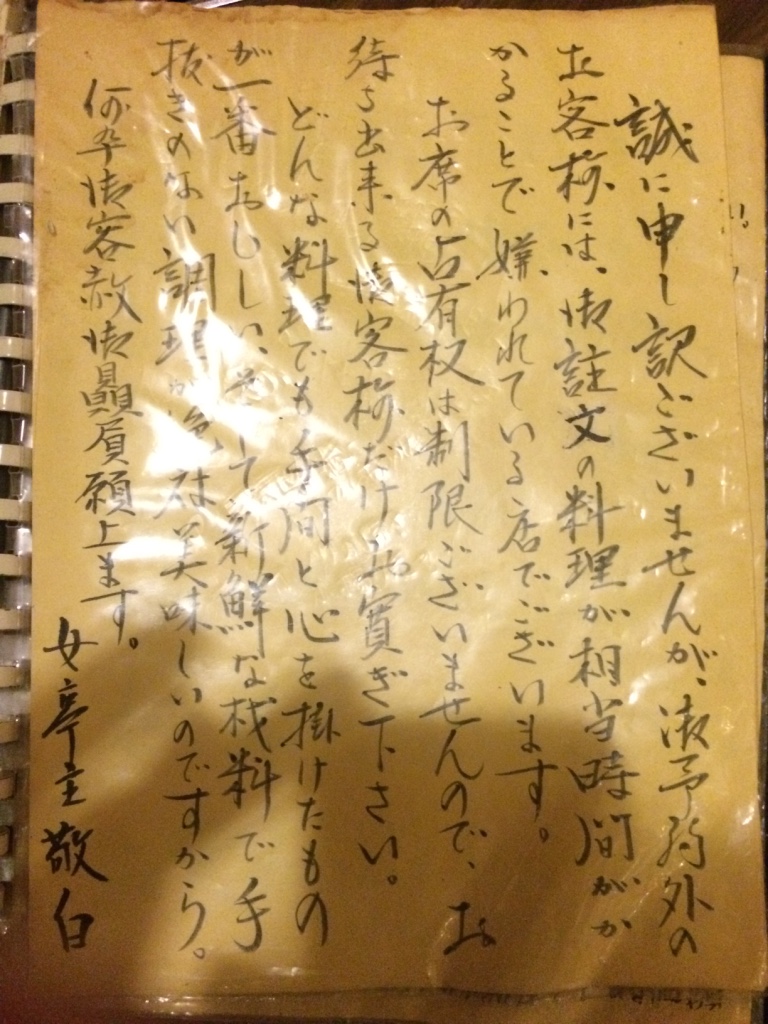 誠に申し訳ございませんが、御予約外の
お客様には、御註文の料理が相当時間がか
かることで嫌われている店でございます。
お席の占有权は制限ございませんので、お
待ち出来る御客様だけお寛ぎ下さい。
どんな料理でも手間と心を掛けたもの
が一番おいしい、そして新鮮な材料で手
抜きのない調理が絶対美味しいのですから。
何卒御客様御贔屓願上ます。
女亭主敬白